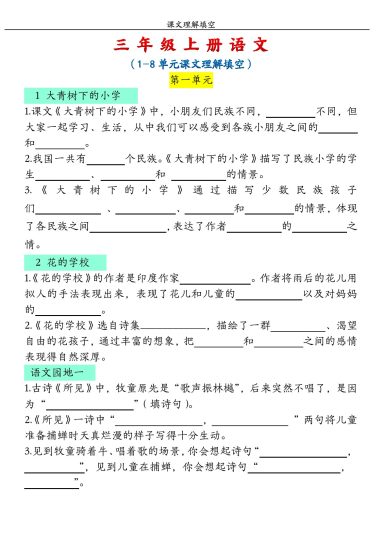 课文理解填空
三年级上册语文
（1-8单元课文理解填空）
第一单元
1 大青树下的小学
1.课文《大青树下的小学》中，小朋友们民族不同，________不同，但
大家一起学习、生活，从中我们可以感受到各族小朋友之间的________
和________。
2.我国一共有________个民族。《大青树下的小学》描写了民族小学的学
生________、________和 ________的情景。
3.《大青树下的小学》通过描写少数民族孩子
们________ 、________、________和________的情景，体现
了各民族之间________,表达了作者________的________之
情。
2 花的学校
1.《花的学校》的作者是印度作家________。作者将雨后的花儿用
拟人的手法表现出来，表现了花儿和儿童的________以及对妈妈
的________。
2.《花的学校》选自诗集________，描绘了一群________、渴望
自由的花孩子，通过丰富的想象，把________和________之间的感情
表现得自然深厚。
语文园地一
1.古诗《所见》中，牧童原先是“歌声振林樾”，后来突然不唱了，是因
为“________”（填诗句）。
2.《所见》一诗中“________，________ ”两句将儿童
准备捕蝉时天真烂漫的样子写得十分生动。
3.见到牧童骑着牛、唱着歌的场景，你会想起诗句“________，
________”，见到儿童在捕蝉，你会想起诗句“________，
________”。